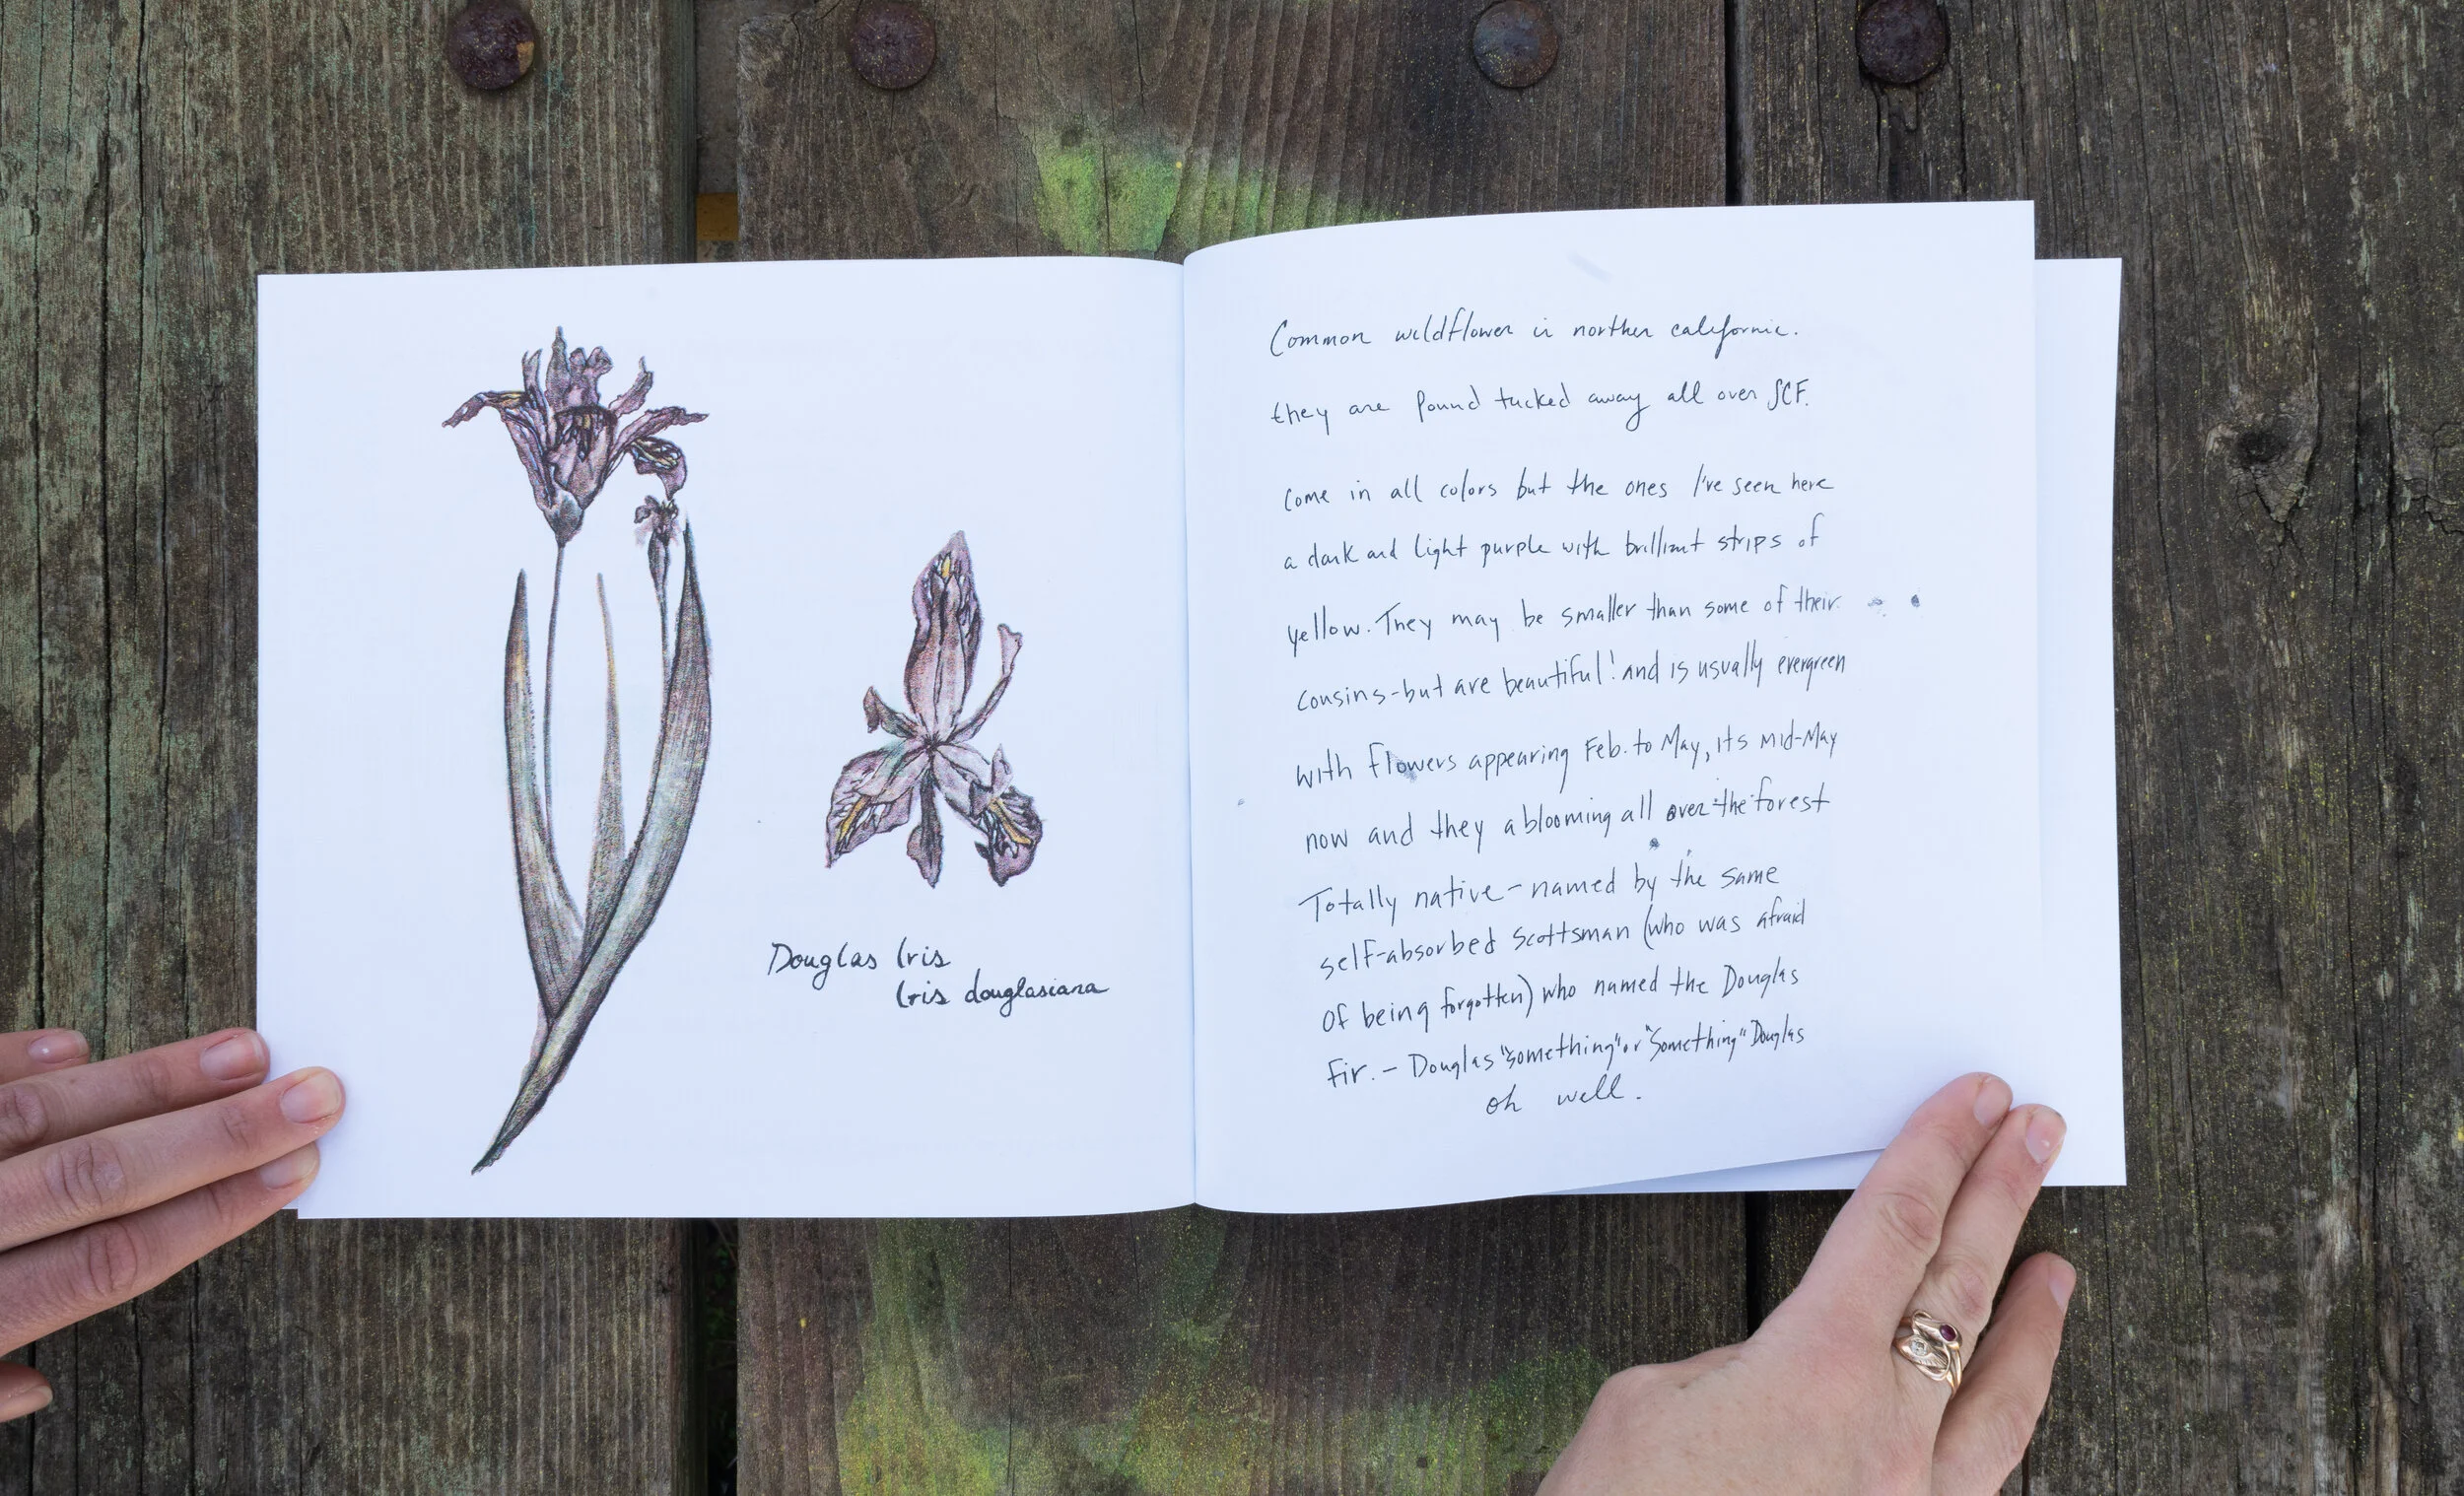 Douglas Iris
Iris douglasiana
Common wildflower in norther california.
they are found tucked away all over JCF.
come in all colors but the ones I've seen here
a dark and light purple with brilliant strips of
yellow. They may be smaller than some of their
cousins-but are beautiful! and is usually evergreen
with flowers appearing Feb. to May, its mid-May
now and they a blooming all over the forest
Totally native - named by the same
self-absorbed Scottsman (who was afraid
of being forgotten) who named the Douglas
Fir. - Douglas "something" or "Something" Douglas
oh well.